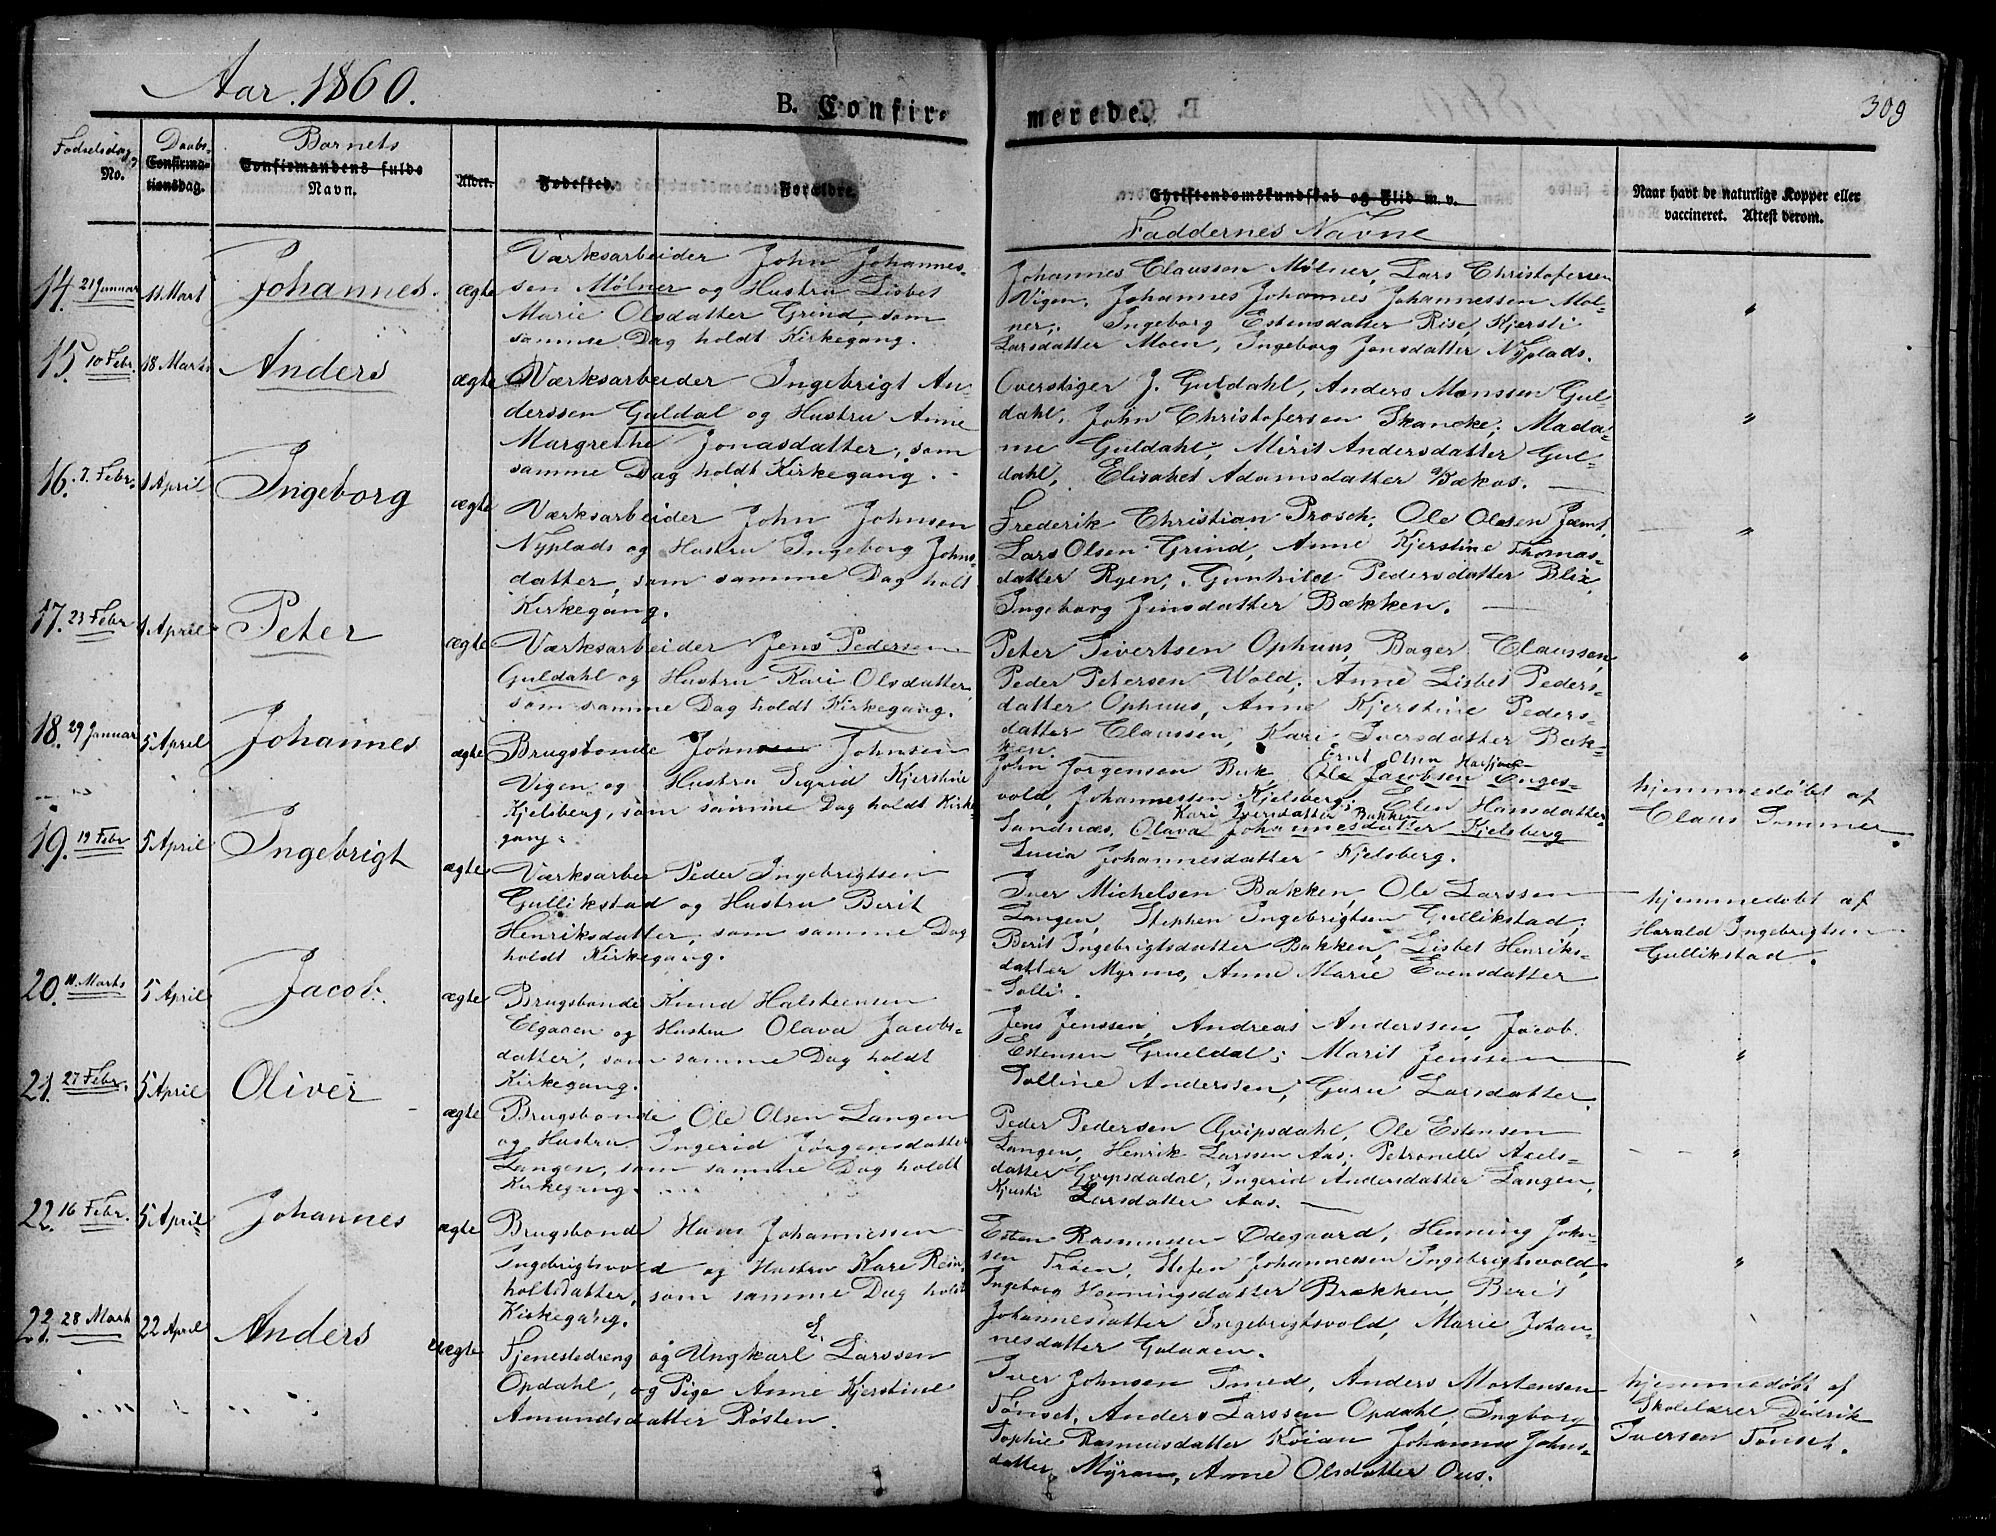 Aar. 1860.
B. Confir-
merede.
309
Fødselsdag
No.
Daabs-
Confirma-
tionsdag.
Barnets
Confirmandens fulde
Navn.
Alder.
Fødested.
Forældre.
Christendomskundskab og Flid m. v.
Faddernes Navne
Naar havt de naturlige Kopper eller
vaccineret. Attest derom.
14. 21 Januar
11 Mart
Johannes.
ægte
Værksarbeider John Johannes-
sen Mølner og Hustru Lisbet
Marie Olsdatter Grind, som
samme Dag holdt Kirkegang.
Johannes Claussen Mølner, Lars Christofersen
Vigen, Johannes Johannes Johannessen Møl-
ner; Ingeborg Estensdatter Rise, Kjersti
Larsdatter Moen, Ingeborg Jonsdatter Nyplads.
"
15. 10 Febr.
18 Marts
Anders
ægte
Værksarbeider Ingebrigt An-
derssen Guldal og Hustru Anne
Margrethe Jonasdatter, som
samme Dag holdt Kirkegang.
Overstiger J. Guldahl, Anders Monssen Gul-
dahl, John Christofersen Skancke; Mada-
me Guldahl, Mirit Andersdatter Gul-
dahl, Elisabet Adamsdatter Bækos.
"
16. 7. Febr.
1 April
Ingeborg
ægte
Værksarbeider John Johnsen
Nyplads og Hustru Ingeborg Johns-
datter, som samme Dag holdt
Kirkegang.
Frederik Christian Prosch, Ole Olsen Jæmt,
Lars Olsen Grind, Anne Kjerstine Thomas-
datter Ryen, Gunhild Pedersdatter Blix,
Ingeborg Jensdatter Bækken.
"
17. 23 Febr
1 April
Peter
ægte
Værksarbeider Jens Pedersen
Guldahl og Hustru Kari Olsdatter,
som samme Dag holdt Kirkegang.
Peter Sivertsen Ophuus, Bager Claussen,
Peder Petersen Wold, Anne Lisbet Peders-
datter Ophuus, Anne Kjerstine Peders-
datter Claussen, Kari Iversdatter Bæk-
ken.
"
18. 29 Januar
5 April
Johannes
ægte
Brugsbonde John Johnsen
Vigen og Hustru Sigrid Kjerstine
Kjelsberg, som samme Dag holdt Kirke-
gang.
Ernt Olsen Harsjøen
John Jørgensen Buk, Ole Jacobsen Enges-
vold, Johannessen Kjelsberg; Elen Hansdatter
Kari Iversdatter Bækken
Sandnæs, Olava Johannesdatter Kjelsberg
Lucia Johannesdatter Kjelsberg.
hjemmedøbt af
Claus Sommer.
19. 19 Febr
5 April
Ingebrigt
ægte
Værksarber Peder Ingebrigtsen
Gullikstad og Hustru Berit
Henriksdatter, som samme Dag
holdt Kirkegang.
Iver Michelsen Bakken, Ole Larssen
Langen, Stephen Ingebrigtsen Gullikstad;
Berit Ingebrigtsdatter Bakken, Lisbet Henriks-
datter Myrmo, Anne Marie Evensdatter
Solli.
hjemmedøbt af
Harald Ingebrigtsen
Gullikstad.
20. 11. Marts
5 April
Jacob.
ægte
Brugsbonde Knud Halsteensen
Elgaaen og Hustru Olava Jacobs-
datter, som samme Dag holdt
Kirkegang.
Jens Jenssen, Andreas Anderssen, Jacob
Estensen Grueldal; Marit Jenssen
Tolline Anderssen, Guru Larsdatter.
"
21. 27 Febr.
5 April
Oliver
ægte
Brugsbonde Ole Olsen Langen
og Hustru Ingerid Jørgensdatter
Langen, som samme Dag holdt
Kirkegang.
Peder Pedersen Gripsdahl, Ole Estensen
Langen, Henrik Larssen Aas; Petronelle Axels-
datter Gripsdadal, Ingerid Andersdatter Langen,
Kjersti Larsdatter Aas.
"
22. 16 Febr.
5 April
Johannes
ægte
Brugsbonde Hans Johannessen
Ingebrigtsvold og Hustru Kare Rein-
holtsdatter, som samme Dag holdt
Kirkegang.
Esten Rasmussen Ødegaard, Henning John-
sen Trøen, Stefen Johannessen Ingebrigtsvold,
Ingeborg Henningsdatter Brækken, Berit
Johannesdatter Ingebrigtsvold, Marie Johan-
nesdatter Galaaen.
"
23. 28 Mart
22 April
Anders
uægte
Tjenestedreng og Ungkarl E. Larssen
Opdahl, og Pige Anne Kjerstine
Amundsdatter Røsten.
Iver Johnsen Smed, Anders Mortensen
Tønset, Anders Larssen Opdahl, Ingborg
Sophie Rasmusdatter Koian Johanna Johns-
datter Myran, Anne Olsdatter Ous.
hjemmedøbt af
Skolelærer Didrik
Iversen Tønset.